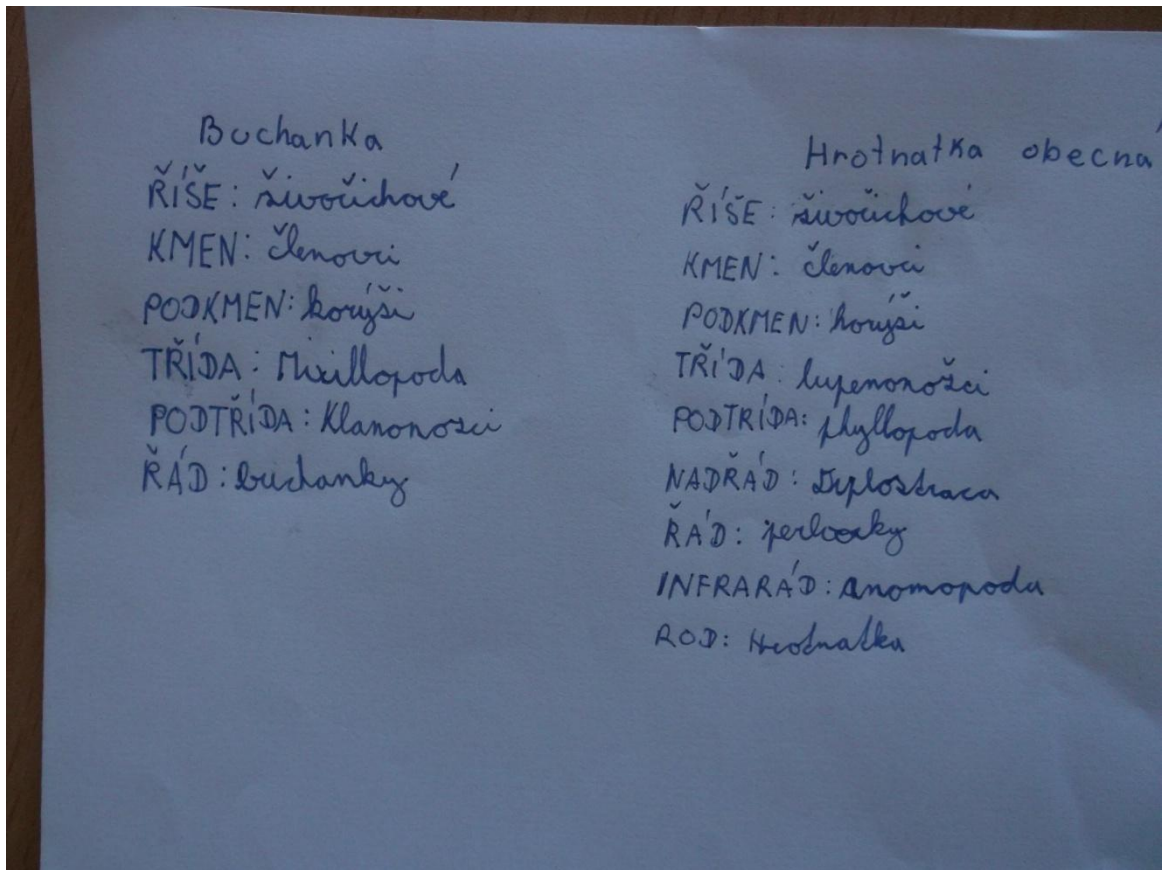 Buchanka
ŘÍŠE: živočichové
KMEN: členovci
PODKMEN: korýši
TŘÍDA: Mixillopoda
PODTŘÍDA: Klanonozci
ŘÁD: buchanky
Hrotnatka obecná
ŘÍŠE: živočichové
KMEN: členovci
PODKMEN: korýši
TŘÍDA: lupenonožci
PODTRÍDA: phyllopoda
NADŘÁD: Diplostraca
ŘÁD: perloočky
INFRARÁD: anomopoda
ROD: Hrotnatka